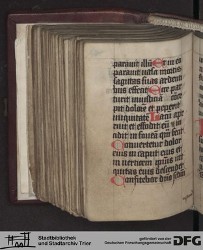 parauit illū Et in eo
parauit vasa mortis
sagittas suas ardenti
bus effecit Ecce par
turit
pit dolorē et peperit
iniquitatē Lacum ape
ruit et effodit eū et in
cidit in fouea quā fecit
Conuertetur dolor
eius in caput eius et
in verticem ipsius ini
quitas eius descendet
Confitebor dño
Stadtbibliothek
und Stadtarchiv Trier
gefördert von der
Deutschen Forschungsgemeinschaft
DFG